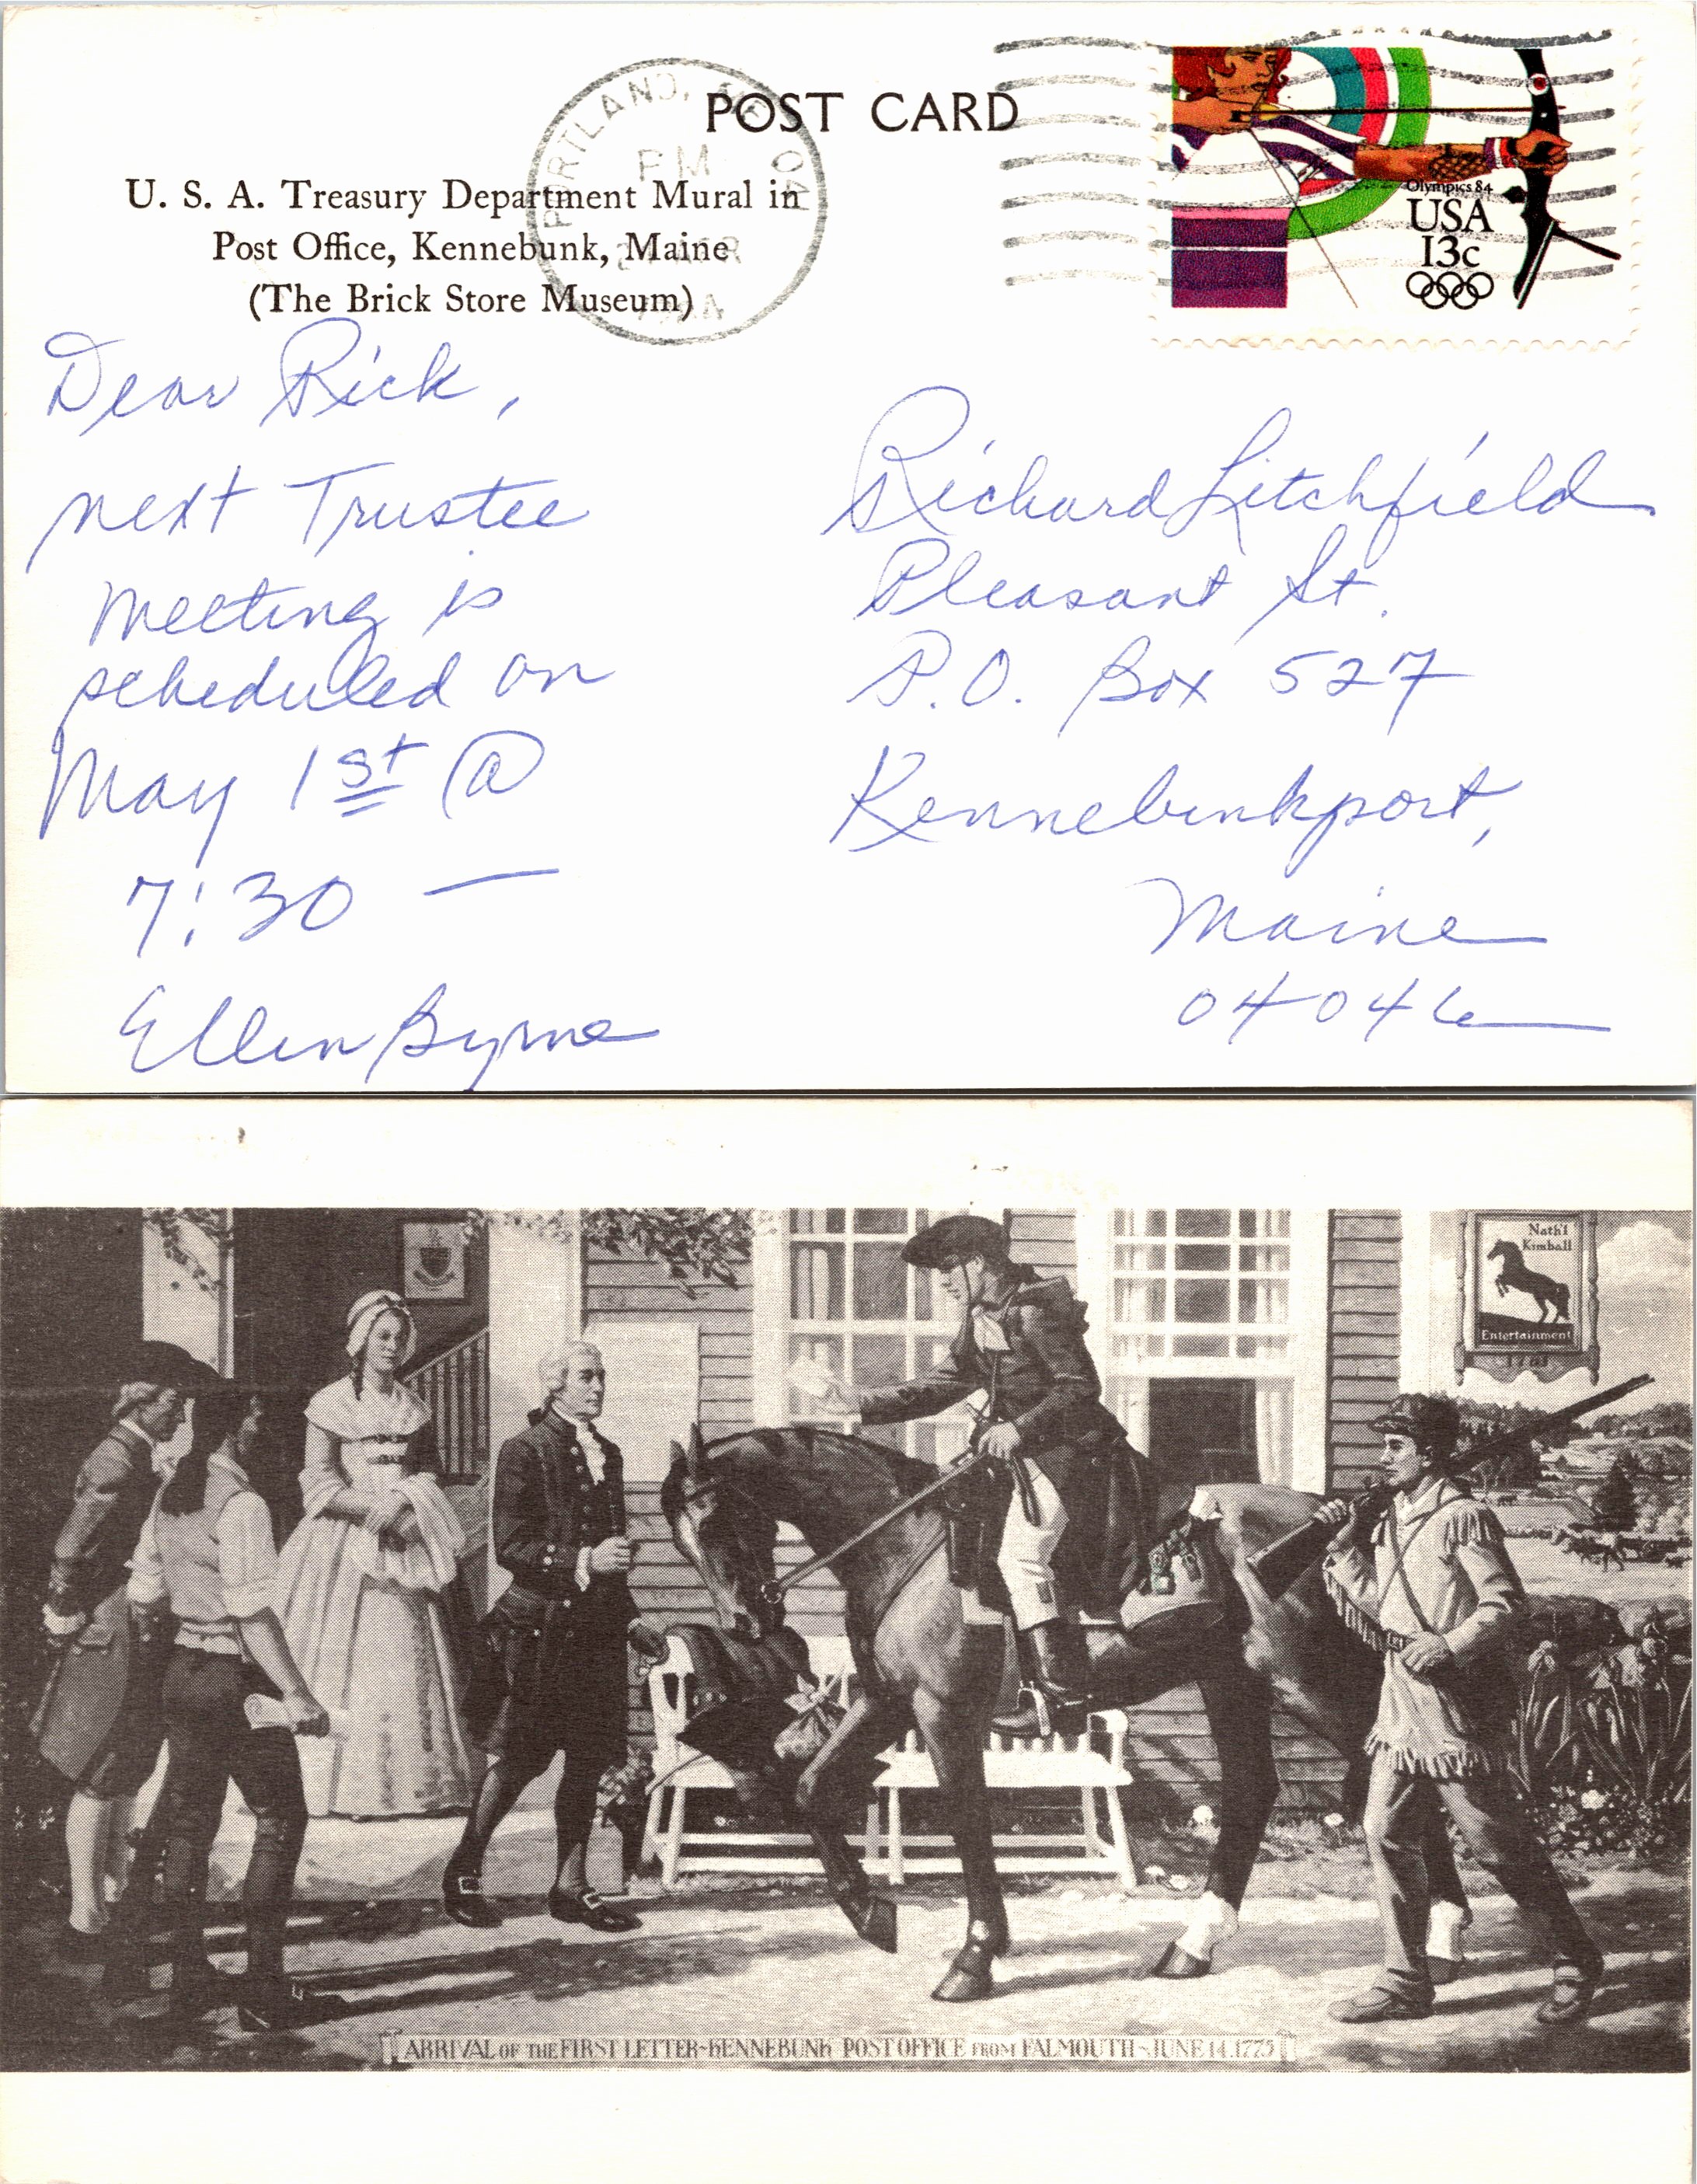 POST CARD
PORTLAND, ME 04
PM
U. S. A. Treasury Department Mural in
Post Office, Kennebunk, Maine
(The Brick Store Museum)
Olympics 84
USA
13c
Dear Rick,
next Trustee
meeting is
scheduled on
May 1st @
7:30 —
Ellen Byrne
Richard Litchfield
Pleasant St.
P.O. Box 527
Kennebunkport,
Maine
04046
Nath'l
Kimball
Entertainment
ARRIVAL OF THE FIRST LETTER-KENNEBUNK POST OFFICE FROM FALMOUTH-JUNE 14, 1775